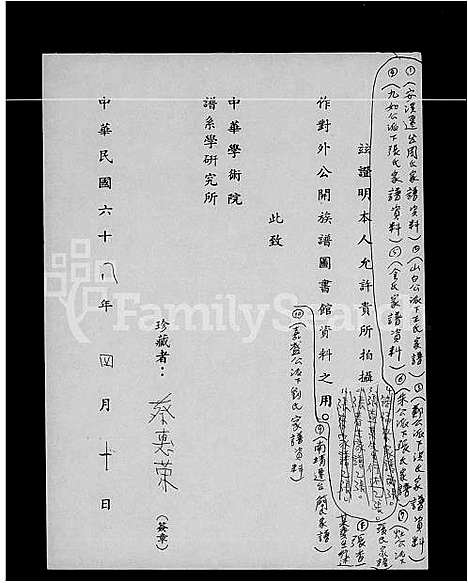 ①(安溪遷台周氏家譜資料)②(山白公派下王氏家譜)③(鄭公派下洪氏家譜資料)
④(九如公派下張氏家譜資料)⑤(金氏家譜資料)⑥(朱公派下張氏家譜)⑦
玆證明本人允許貴所拍攝
⑧張
作對外公開族譜圖書館資料之用。⑨(南靖遷台簡氏家譜)
⑩(嘉盛公派下劉氏家譜資料)
此致
中華學術院
譜系學研究所
珍藏者:蔡惠榮(簽章)
中華民國六十八年四月十日
FamilySearch